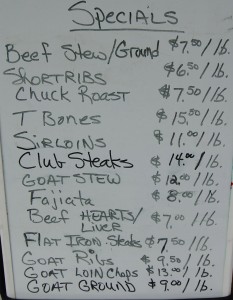 SPECIALS
Beef Stew/Ground $7.50/lb.
SHORTRIBS $6.50/lb.
Chuck Roast $7.50/lb.
T Bones $15.50/lb.
SIRLOINS $11.00/lb.
Club Steaks $14.00/lb.
GOAT STEW $12.00/lb.
Fajiata $8.00/lb.
Beef HEARTS/
LIVER $7.00/lb.
FLAT IRON Steaks $7.50/lb.
GOAT RIBS $9.50/lb.
GOAT LOIN Chops $13.00/lb.
GOAT GROUND $9.00/lb.